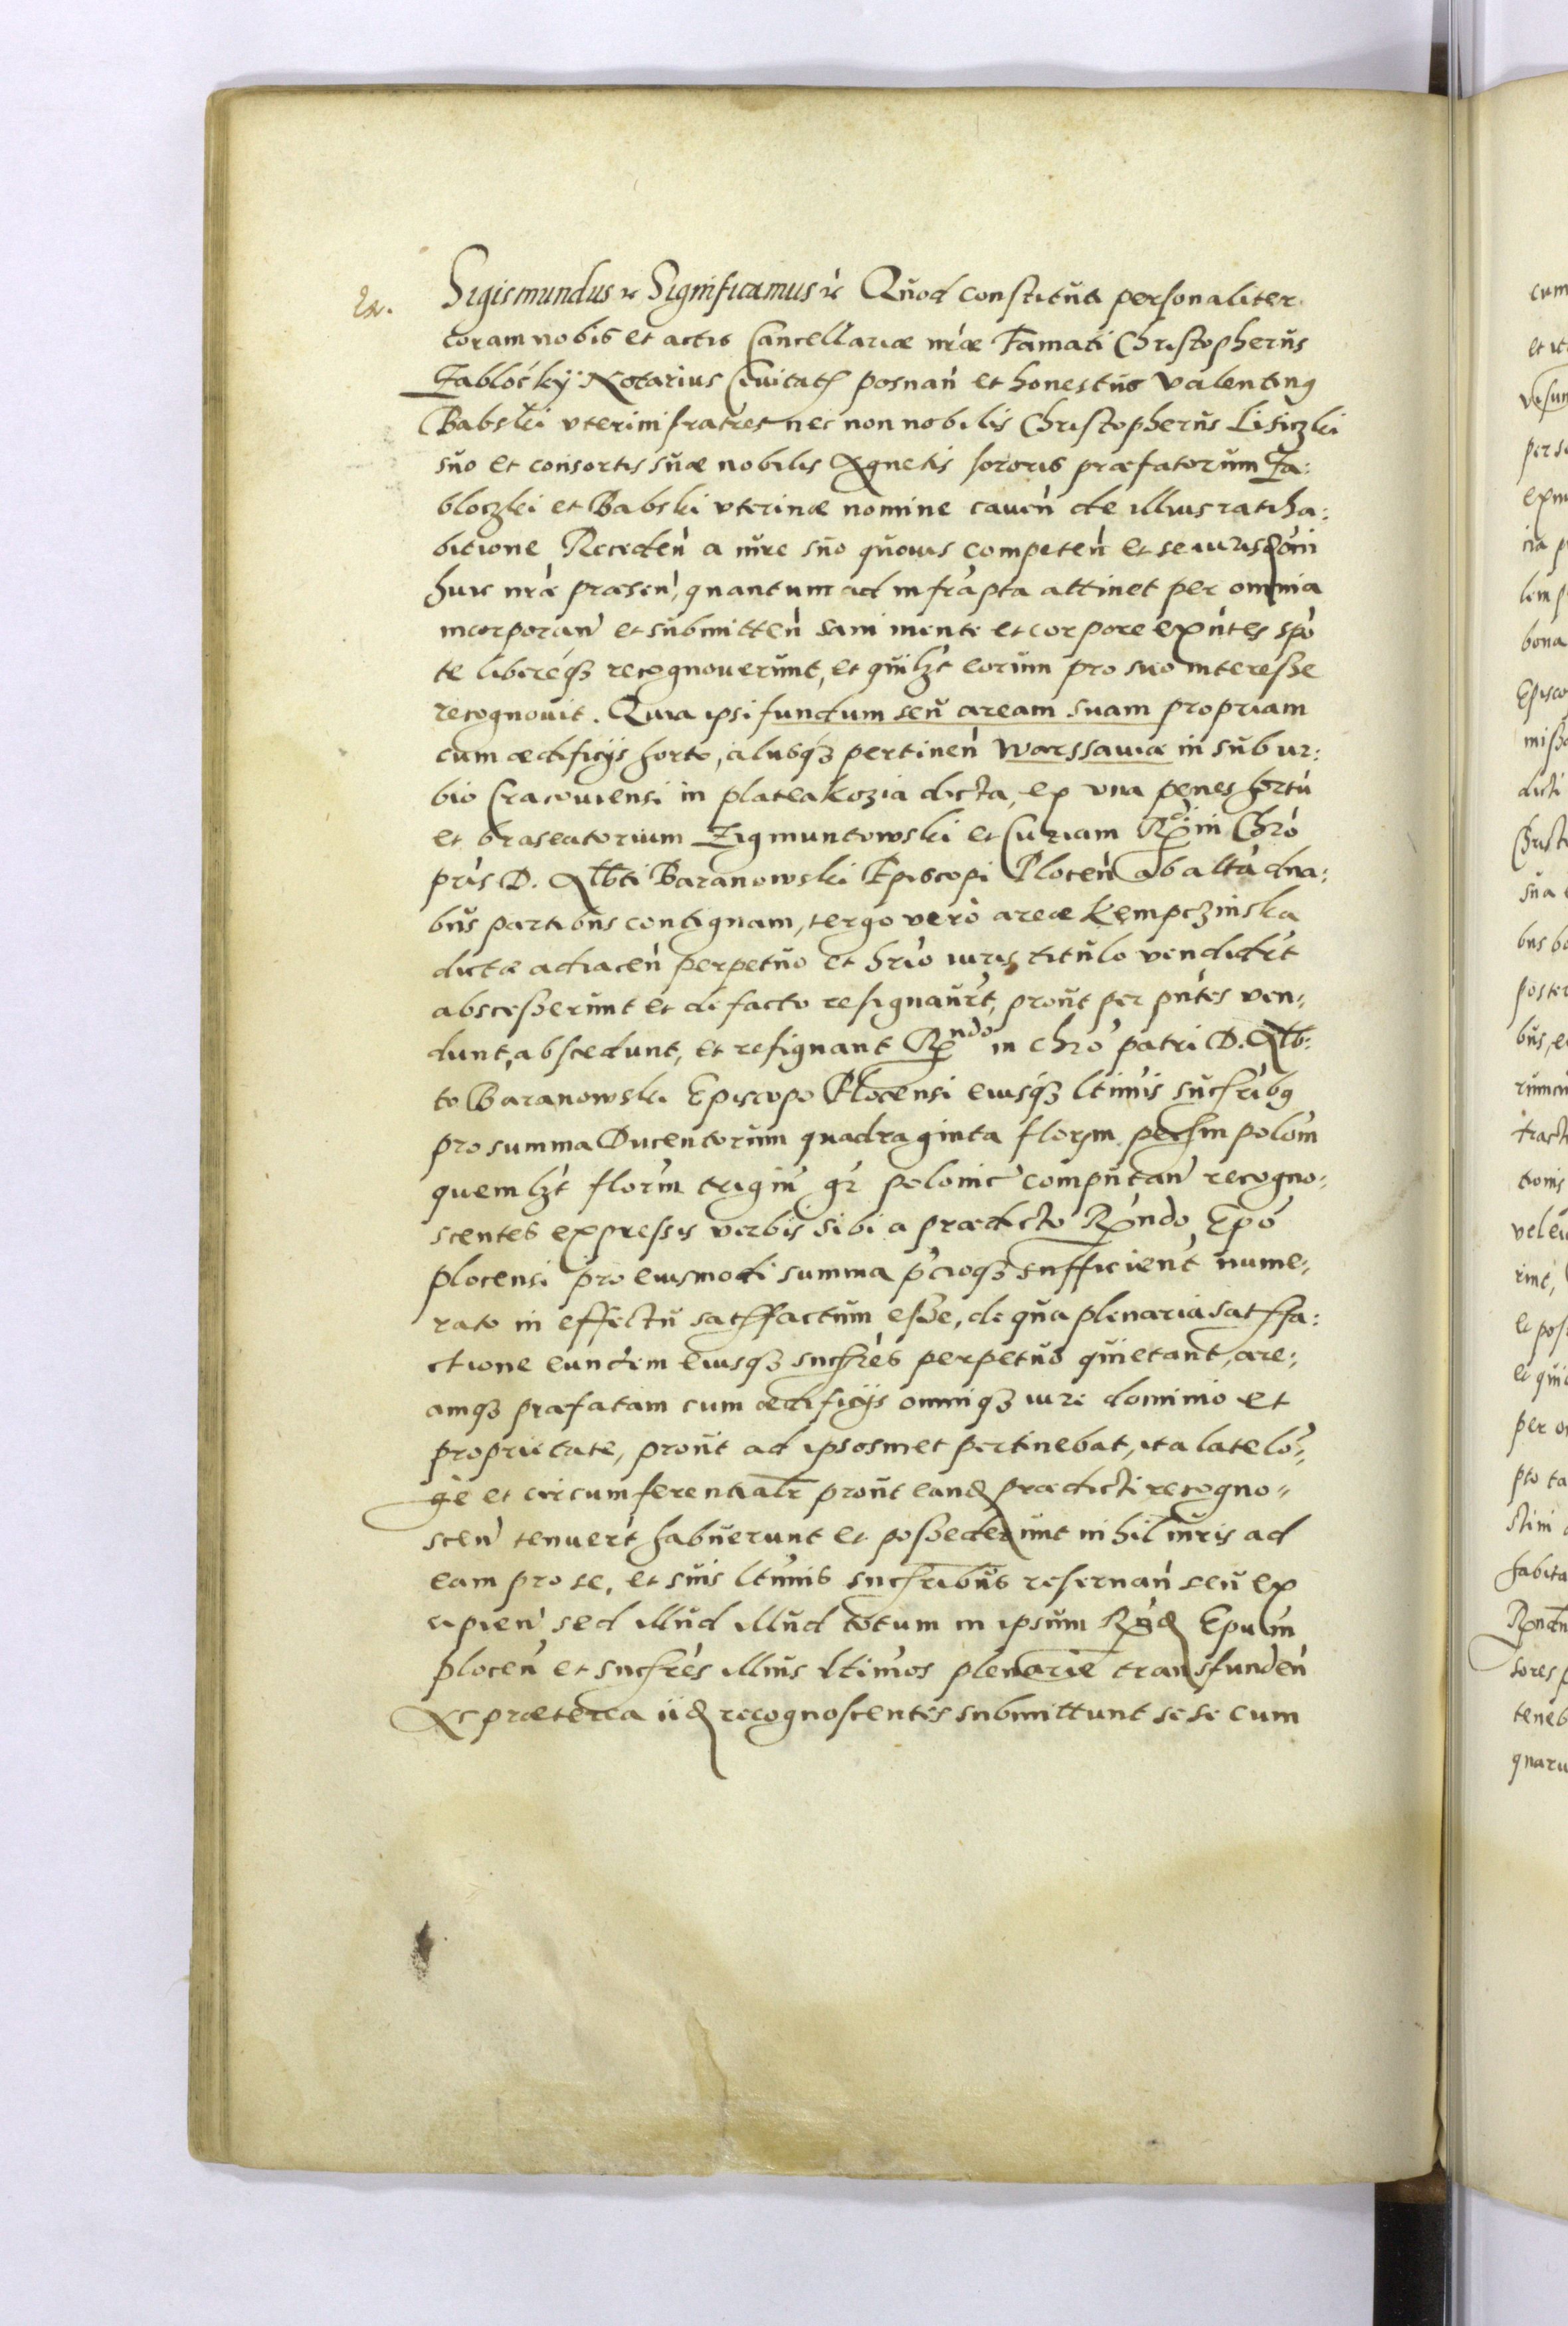 Ex. Sigismundus etc Significamus etc Quod constituti personaliter
coram nobis et actis Cancellariæ nræ Famati Christopherus
Jablocky Notarius Ciuitatis posnan et honestus Valentinus
Babski vterini fratres nec non nobilis Christopherus Lisiczki
suo et consortis suæ nobilis Agnetis sororis præfatorum Ja:
bloczki et Babski vterinæ nomine cauen de illius ratiha:
bitione Receden a iure suo quouis competen et se iurisdoni
huic nræ præsen, quantum ad infrapta attinet per omnia
incorporan et submitten sani mente et corpore exntes spo
te libereq3 recognouerunt, et quilzt eorum pro suo interesse
recognouit. Quia ipsi fundum seu aream suam propriam
cum ædificijs horto, alijsq3 pertinen Warssauiæ in subur:
bio Cracouiensi in platea Kozia dicta, ex vna penes hortu
et braseatorium Zigmuntowski et Curiam Rdi in Chro
pris D. Alberti Baranowski Episcopi Plocen ab altera dua:
bus partibus contiguam, tergo vero areæ Kempczinska
dictæ adiacen perpetuo et hrio iuris titulo vendidert
abscesserunt et de facto resignaurt, prout per pntes ven:
dunt, abscedunt, et resignant Rndo in Chro patri D. Alb:
to Baranowski Episcopo Plocensi eiusq3 ltimis sucsribus
pro summa Ducentorum quadraginta florm pecsm polom
quemlzt florm trigin gr polonic computan recogno:
scentes expressis verbis sibi a prædicto Rndo Epo
plocensi pro eiusmodi summa pcioq3 sufficient nume:
rato in effectu satisfactum esse, de qua plenaria satisfa:
ctione eundem eiusq3 sucsres perpetuo quietant, are:
amq3 præfatam cum ædificijs omniq3 iure dominio et
proprietate, prout ad ipsosmet pertinebat, ita late lo:
ge et circumferentialr prout eand prædicti recogno:
scen tenuert habuerunt et possederunt nihil iuris ad
eam pro se, et suis ltimis sucsribus reseruan seu ex
cipien sed illud illud totum in ipsum Rnd Epum
plocen et sucsres illius ltimos plenarie transfunden
Ac præterea iid recognoscentes submittunt sese cum